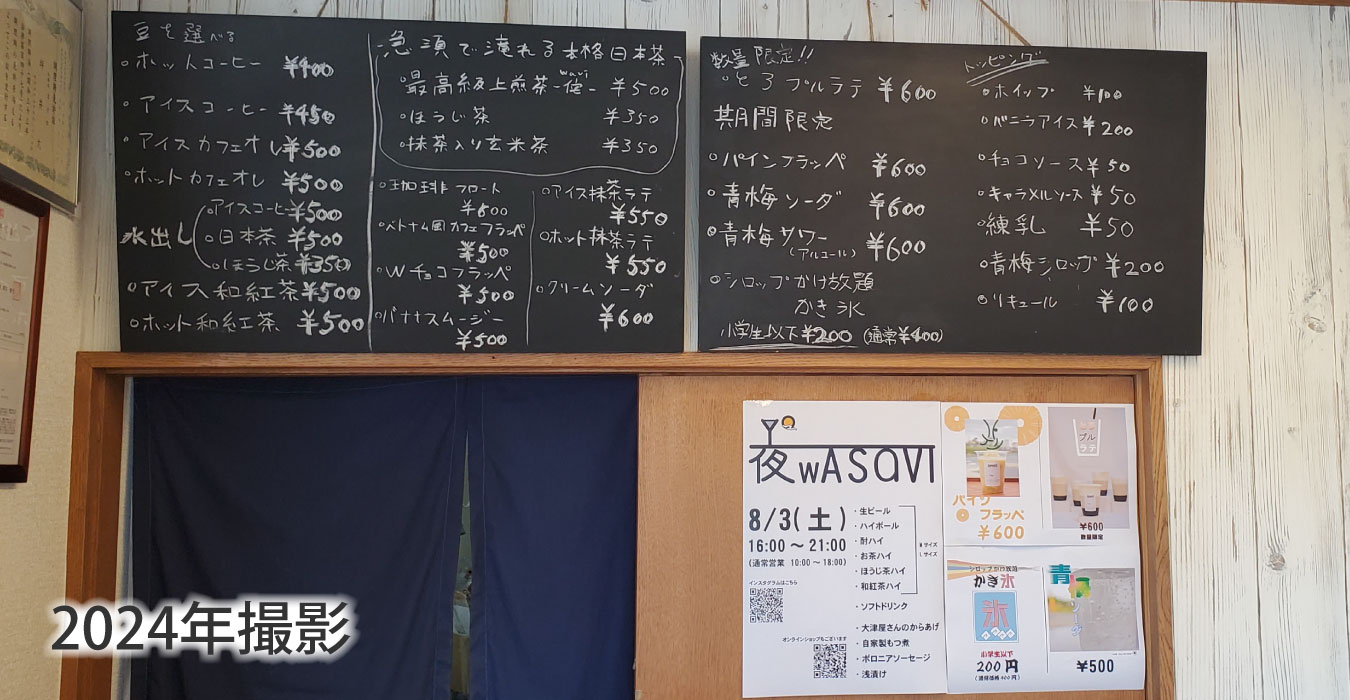 豆を選べる
・ホットコーヒー ¥400
・アイスコーヒー ¥450
・アイスカフェオレ ¥500
・ホットカフェオレ ¥500
水出し
・アイスコーヒー ¥500
・日本茶 ¥500
・ほうじ茶 ¥350
・アイス和紅茶 ¥500
・ホット和紅茶 ¥500
急須で淹れる本格日本茶
wavi
・最高級上煎茶 ¥500
・ほうじ茶 ¥350
・抹茶入り玄米茶 ¥350
・珈琲フロート
¥600
・ベトナム風カフェフラッペ
¥500
・Wチョコフラッペ
¥500
・バナナスムージー
¥500
・アイス抹茶ラテ
¥550
・ホット抹茶ラテ
¥550
・クリームソーダ
¥600
数量限定!!
・とろプルラテ ¥600
期間限定
・パインフラッペ ¥600
・青梅ソーダ ¥600
・青梅サワー ¥600
(アルコール)
・シロップかけ放題
かき氷
小学生以下¥200 (通常¥400)
トッピング
・ホイップ ¥100
・バニラアイス ¥200
・チョコソース ¥50
・キャラメルソース ¥50
・練乳 ¥50
・青梅シロップ ¥200
・リキュール ¥100
夜wASaVI
8/3(土)
16:00 ～ 21:00
(通常営業 10:00 ～ 18:00)
インスタグラムはこちら
オンラインショップもございます
・生ビール
・ハイボール
・酎ハイ
・お茶ハイ
・ほうじ茶ハイ
・和紅茶ハイ
Mサイズ
Lサイズ
・ソフトドリンク
・大津屋さんのからあげ
・自家製もつ煮
・ボロニアソーセージ
・浅漬け
パイン
フラッペ
¥600
プル
ラテ
¥600
数量限定
シロップかけ放題
かき氷
氷
小学生以下
200円
(通常価格400円)
青梅
ソーダ
¥500
2024年撮影